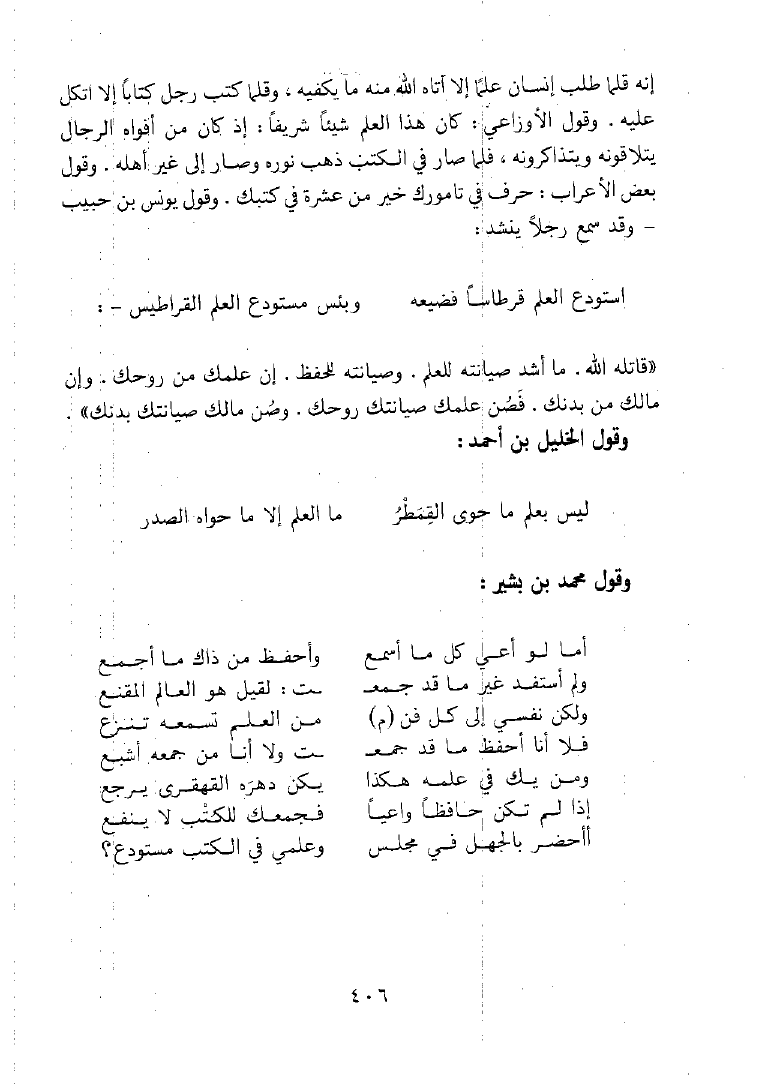 إنه قلما طلب إنسان علمًا إلا آتاه الله منه ما يكفيه ، وقلما كتب رجل كتاباً إلا اتكل
عليه . وقول الأوزاعي : كان هذا العلم شيئاً شريفاً : إذ كان من أفواه الرجال
يتلاقونه ويتذاكرونه ، فلما صار في الكتب ذهب نوره وصار إلى غير أهله . وقول
بعض الأعراب : حرف في تامورك خير من عشرة في كتبك . وقول يونس بن حبيب
– وقد سمع رجلاً ينشد :
استودع العلم قرطاساً فضيعه وبئس مستودع العلم القراطيس – :
«قاتله الله . ما أشد صيانته للعلم . وصيانته للحفظ . إن علمك من روحك . وإن
مالك من بدنك . فَصُن علمك صيانتك روحك . وصُن مالك صيانتك بدنك» .
وقول الخليل بن أحمد :
ليس بعلم ما حوى القِمَطْرُ ما العلم إلا ما حواه الصدر
وقول محمد بن بشير :
أما لو أعي كل ما أسمع وأحفظ من ذاك ما أجمع
ولم أستفد غير ما قد جمعـ ـت : لقيل هو العالم المقنع
ولكن نفسي إلى كل فن (م) من العلم تسمعه تنزع
فلا أنا أحفظ ما قد جمعـ ـت ولا أنا من جمعه أشبع
ومن يك في علمه هكذا يكن دهرَه القهقرى يرجع
إذا لم تكن حافظاً واعياً فجمعك للكتْب لا ينفع
أأحضر بالجهل في مجلس وعلمي في الكتب مستودع؟
٤٠٦